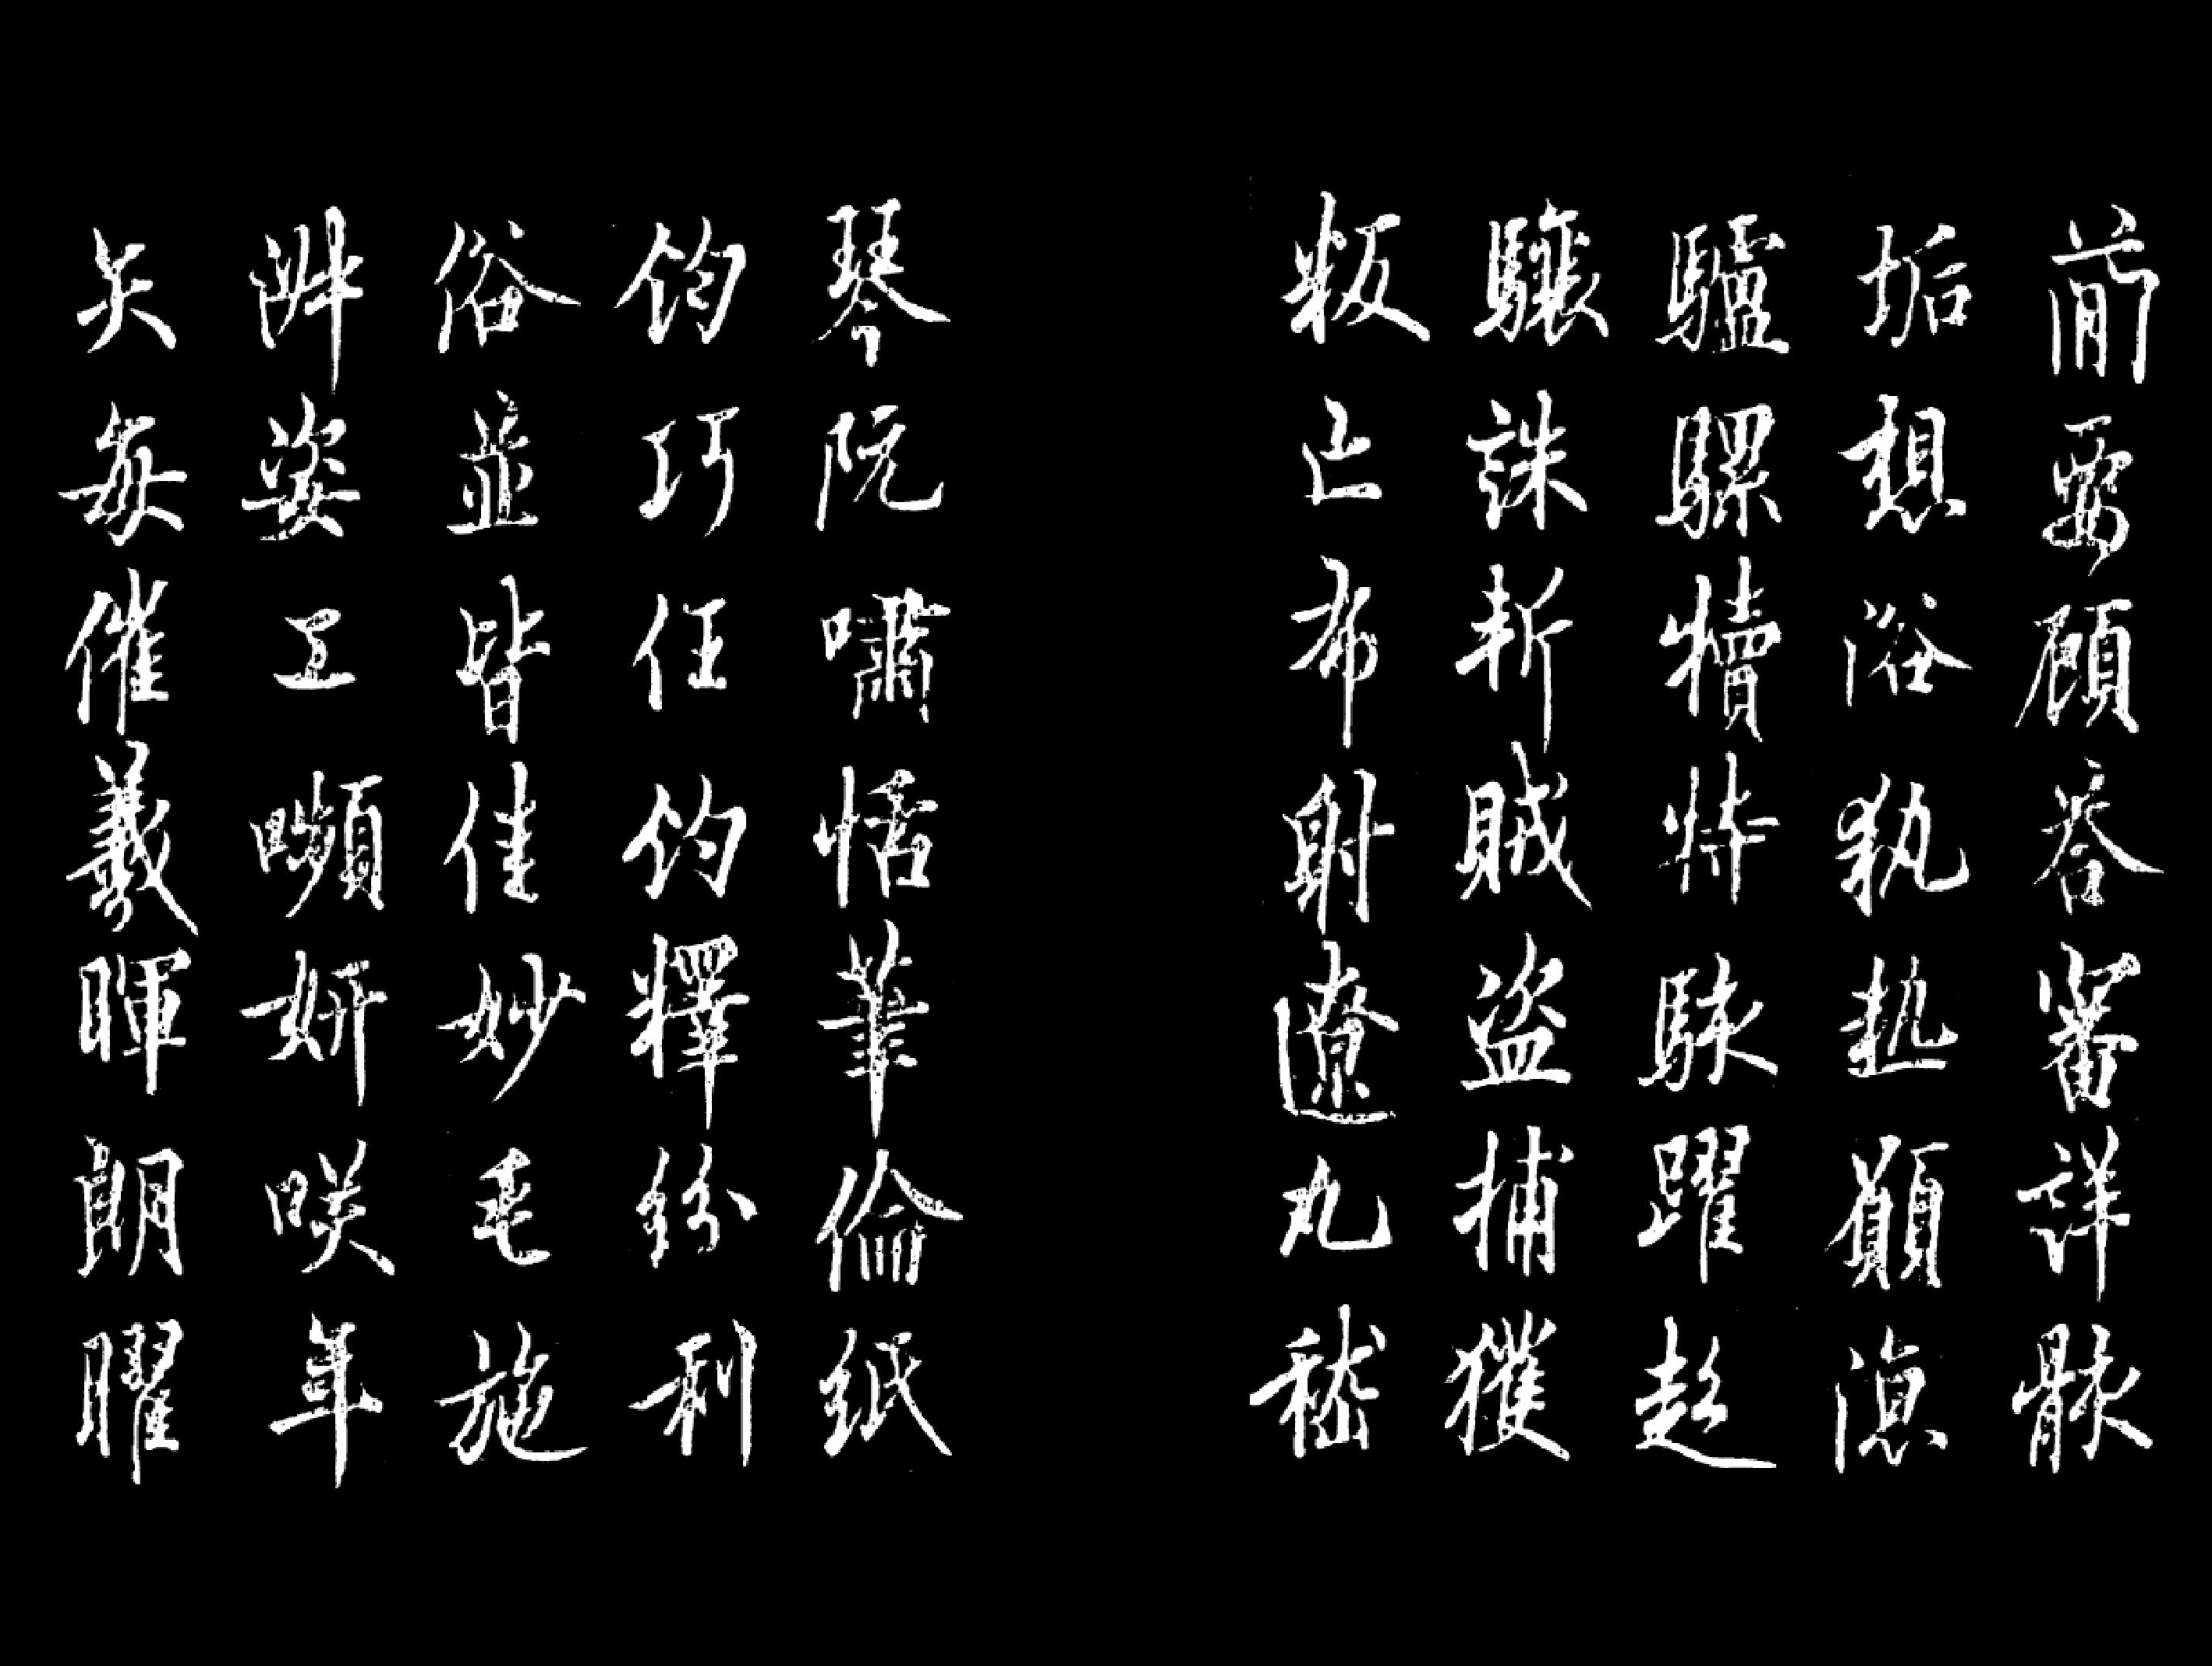 蕳要顧荅審詳骸
垢想浴執熱願涼
驢騾犢特駭躍超
驤誅斬賊盜捕獲
叛亡布射遼丸嵇
琴阮嘯恬筆倫紙
鈞巧任釣釋紛利
俗並皆佳妙毛施
淑姿工嚬妍咲年
矢每催羲暉朗曜